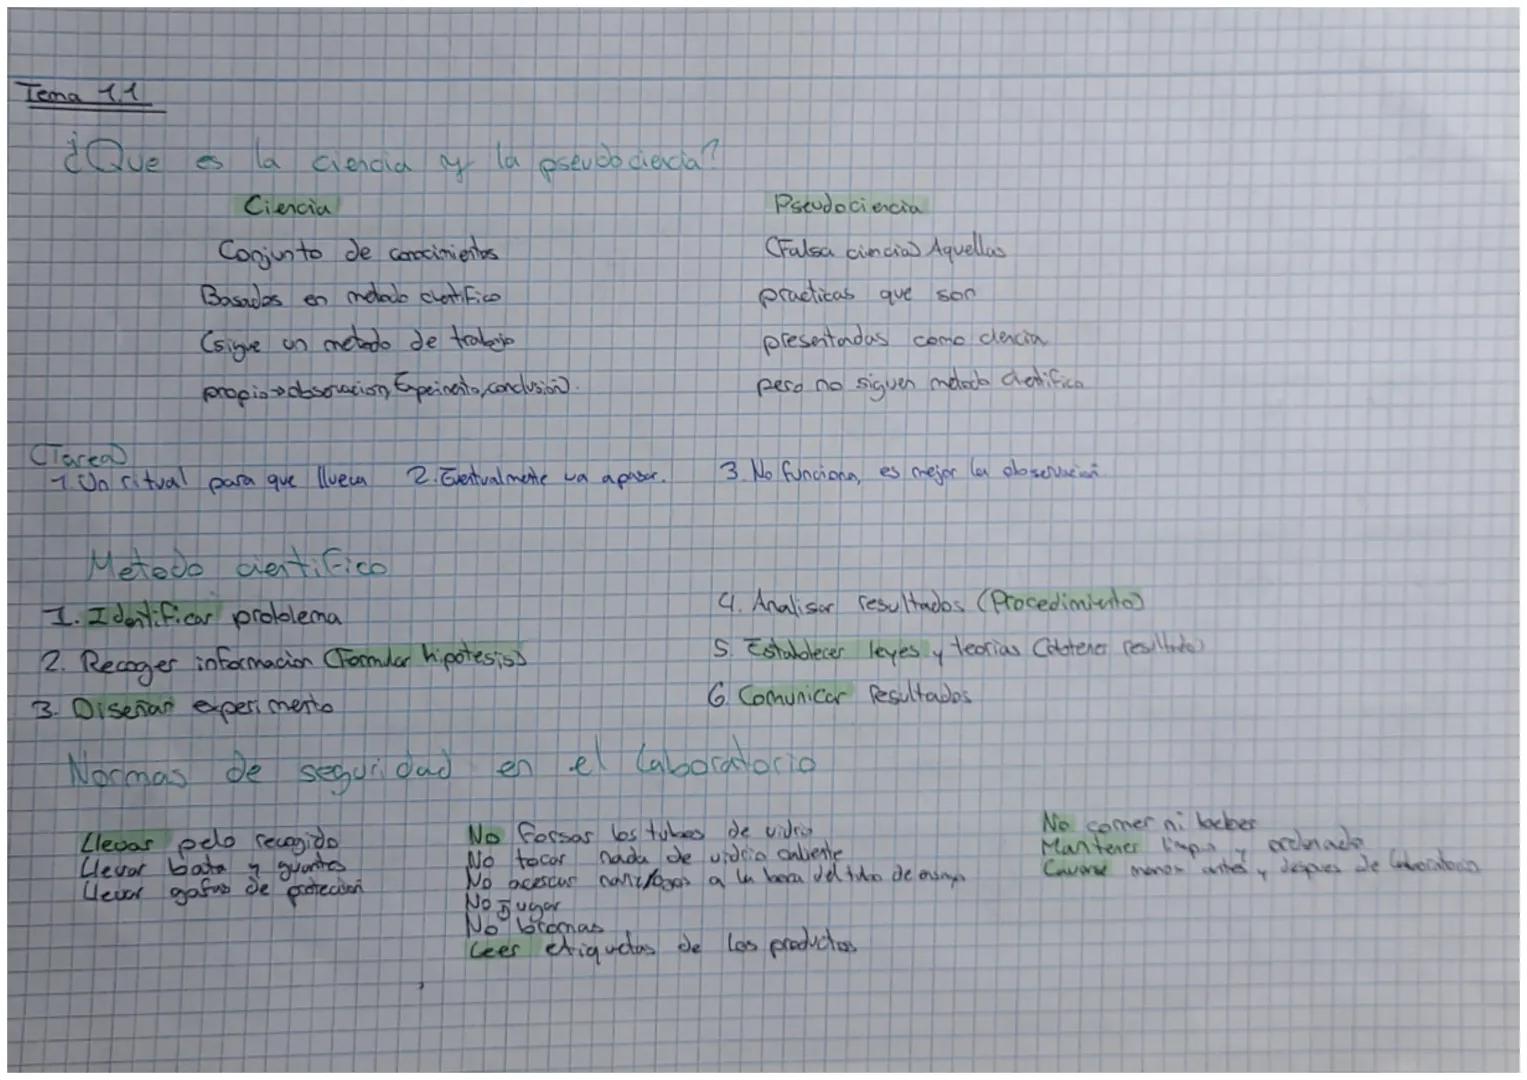 Tema 1.1
¿Que es la ciencia y la pseudociencia?
Ciencia
Conjunto de conocimientos
Basados en metodo cientifico
(sigue un metodo de trabajo
propio→observacion, Experimento, conclusión).
Pseudociencia
(Falsa ciencia) Aquellas
practicas que son
presentadas como ciencia
pero no siguen metodo cientifico
(Tarea)
1. Un ritual para que llueva 2. Eventualmente va a pasar. 3. No funciona, es mejor la observación
Metodo cientifico
1. Identificar problema
2. Recoger informacion (Formular hipotesis)
3. Diseñar experimento
4. Analisar resultados (Procedimiento)
5. Establecer leyes y teorias (Obtener resultado)
6. Comunicar Resultados
Normas de seguridad en el laboratorio
Llevar pelo recogido
Llevar bata y guantes
Llevar gafas de protección
No forsar los tubos de vidrio
No tocar nada de vidrio caliente
No acercar nariz/ojos a la boca del tubo de ensayo
No Jugar
No bromas
Leer etiquetas de los productos
No comer ni beber
Mantener limpio y ordenado
Lavarse manos antes y despues de laboratorio